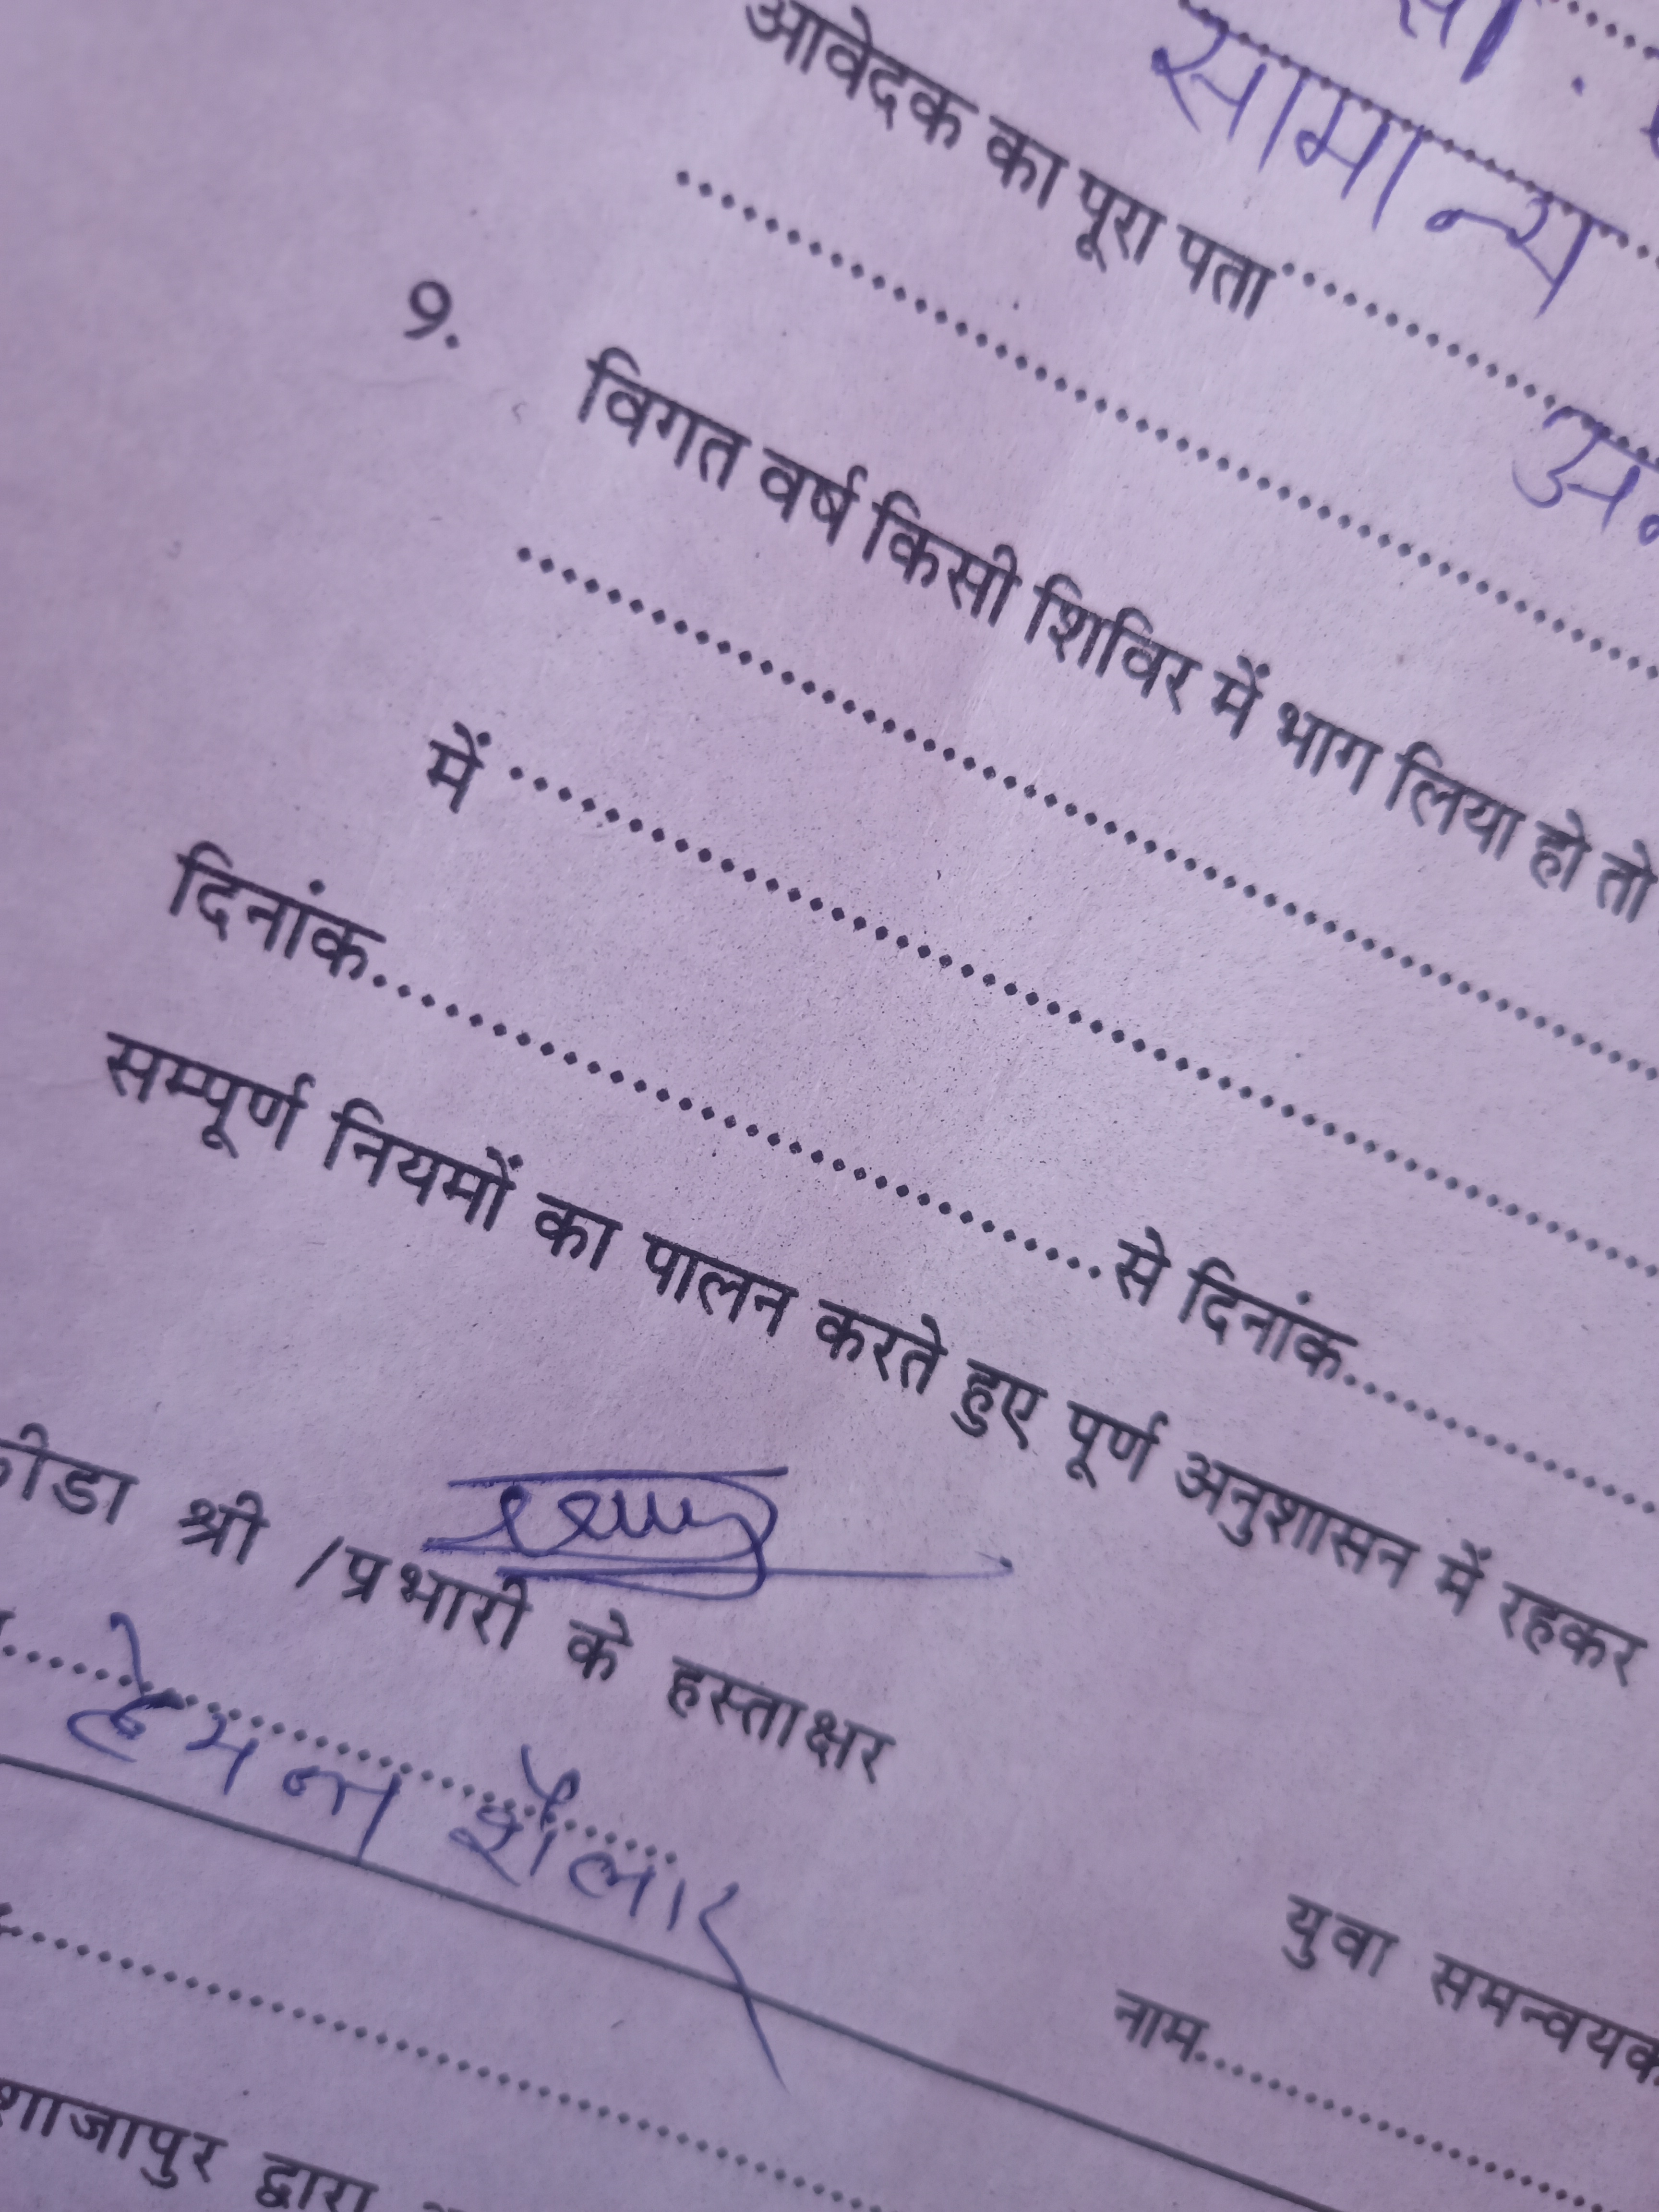 सामान्य
आवेदक का पूरा पता
9. विगत वर्ष किसी शिविर में भाग लिया हो तो
में
दिनांक से दिनांक
सम्पूर्ण नियमों का पालन करते हुए पूर्ण अनुशासन में रहकर
श्री / प्रभारी के हस्ताक्षर
हेमन्त शैलार
युवा समन्वयक
नाम
शाजापुर द्वारा